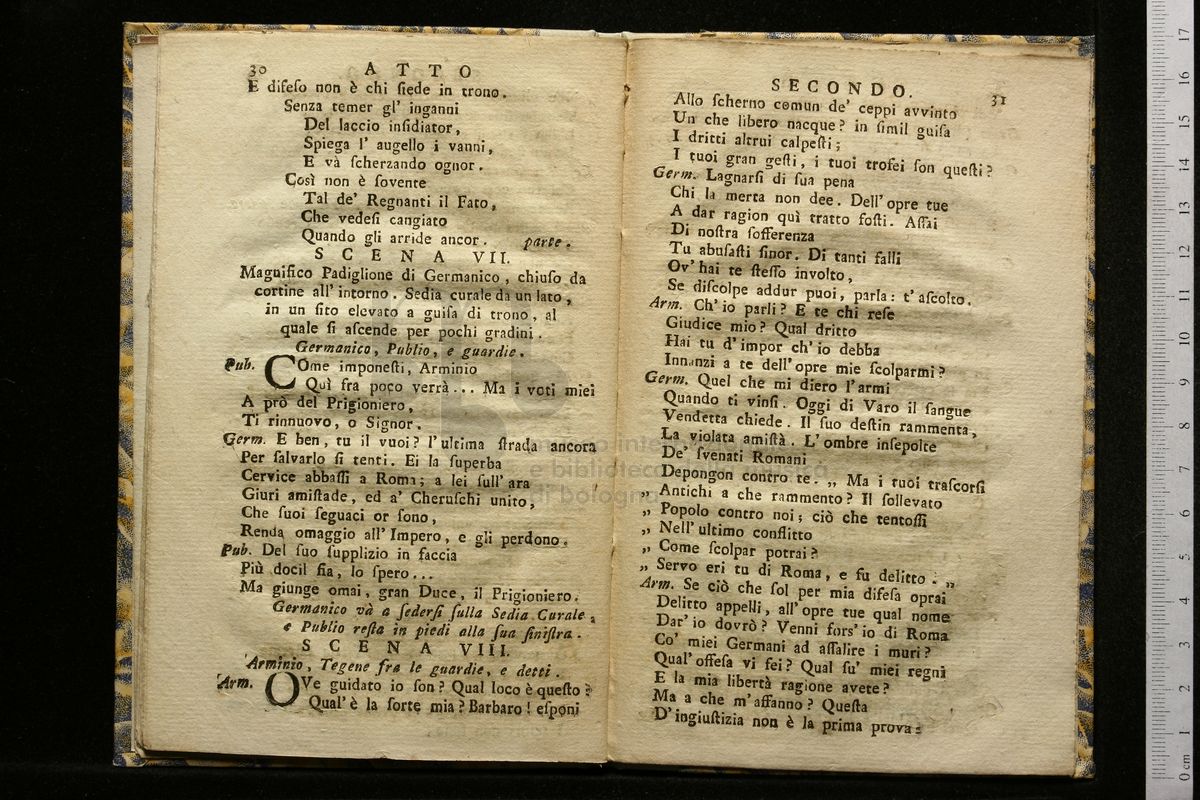 30 ATTO
E difeſo non è chi ſiede in trono.
Senza temer gl' inganni
Del laccio inſidiator,
Spiega l' augello i vanni,
E và ſcherzando ognor.
Così non è ſovente
Tal de' Regnanti il Fato,
Che vedeſi cangiato
Quando gli arride ancor. parte.
SCENA VII.
Magnifico Padiglione di Germanico, chiuſo da
cortine all' intorno. Sedia curale da un lato,
in un ſito elevato a guiſa di trono, al
quale ſi aſcende per pochi gradini.
Germanico, Publio, e guardie.
Pub. COme imponeſti, Arminio
Quì fra poco verrà... Ma i voti miei
A prò del Prigioniero,
Ti rinnuovo, o Signor.
Germ. E ben, tu il vuoi? l'ultima ſtrada ancora
Per ſalvarlo ſi tenti. Ei la ſuperba
Cervice abbaſſi a Roma; a lei ſull'ara
Giuri amiſtade, ed a' Cheruſchi unito,
Che ſuoi ſeguaci or ſono,
Renda omaggio all' Impero, e gli perdono.
Pub. Del ſuo ſupplizio in faccia
Più docil fia, lo ſpero...
Ma giunge omai, gran Duce, il Prigioniero.
Germanico và a ſederſi ſulla Sedia Curale,
e Publio reſta in piedi alla ſua ſiniſtra.
SCENA VIII.
Arminio, Tegene fra le guardie, e detti.
Arm. OVe guidato io ſon? Qual loco è queſto?
Qual' è la ſorte mia? Barbaro! eſponi
SECONDO. 31
Allo ſcherno comun de' ceppi avvinto
Un che libero nacque? in ſimil guiſa
I dritti altrui calpeſti;
I tuoi gran geſti, i tuoi trofei ſon queſti?
Germ. Lagnarſi di ſua pena
Chi la merta non dee. Dell'opre tue
A dar ragion quì tratto foſti. Aſſai
Di noſtra ſofferenza
Tu abuſaſti finor. Di tanti falli
Ov' hai te ſteſſo involto,
Se diſcolpe addur puoi, parla: t'aſcolto.
Arm. Ch' io parli? E te chi reſe
Giudice mio? Qual dritto
Hai tu d'impor ch'io debba
Innanzi a te dell'opre mie ſcolparmi?
Germ. Quel che mi diero l'armi
Quando ti vinſi. Oggi di Varo il ſangue
Vendetta chiede. Il ſuo deſtin rammenta,
La violata amiſtà. L'ombre inſepolte
De' ſvenati Romani
Depongon contro te. „ Ma i tuoi traſcorſi
„ Antichi a che rammento? Il ſollevato
„ Popolo contro noi; ciò che tentoſſi
„ Nell'ultimo conflitto
„ Come ſcolpar potrai?
„ Servo eri tu di Roma, e fu delitto. „
Arm. Se ciò che ſol per mia difeſa oprai
Delitto appelli, all'opre tue qual nome
Dar' io dovrò? Venni forſ' io di Roma
Co' miei Germani ad aſſalire i muri?
Qual' offeſa vi fei? Qual ſu' miei regni
E la mia libertà ragione avete?
Ma a che m'affanno? Queſta
D'ingiuſtizia non è la prima prova: